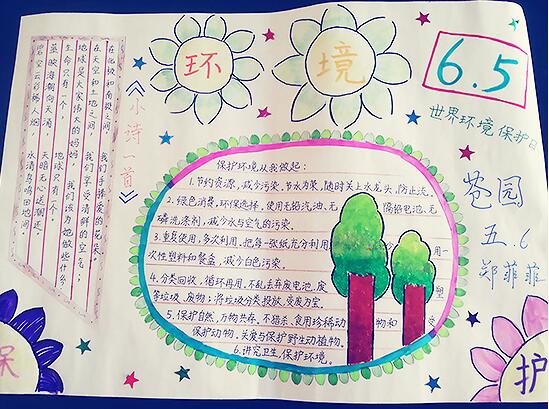 环境
6.5
世界环境保护日
茗园
五.6
郑菲菲
《小诗一首》
在北极和南极之间,
在天空和土地之间,
地球是大家伟大的妈妈
生命只有一个,
蓝映海潮向天涌,
碧空云彩稀人烟
我们手捧爱的花朵,
我们享受清鲜的空气;
地球只有一个,
我们该为她做些什么
天暗无心送潮还。
水清鸟鸣田地间。
保护环境从我做起:
1.节约资源,减少污染,节水为荣,随时关上水龙头,防止滴流。
2.绿色消费,环保选择,使用无铅汽油、无镉铅电池、无
磷洗涤剂,减少水与空气的污染。
3.重复使用,多次利用,把每一张纸充分利用 用一
次性塑料和餐盒,减少白色污染。 塑
4.分类回收,循环再用,不乱丢弃废电池、废
弃垃圾、废物;将垃圾分类投放,变废为宝。
5.保护自然,万物共存,不猎杀、食用珍稀动物和受
保护动物。关爱与保护野生动植物。
6.讲究卫生,保护环境。
保
护